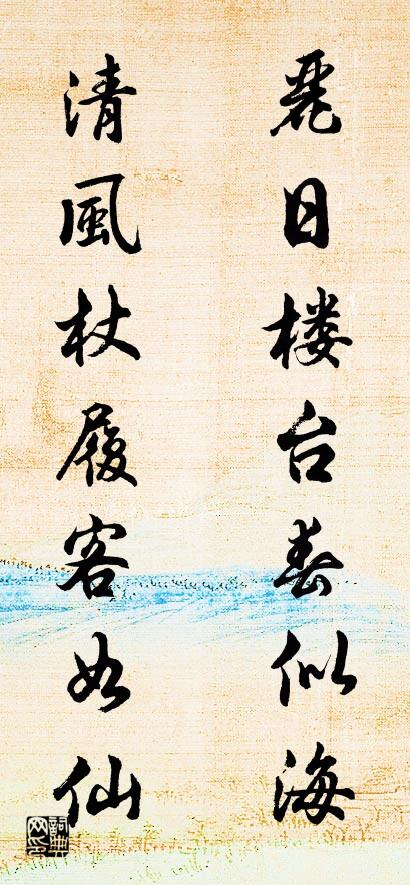 麗日楼台春似海
清風杖履客如仙
詞典網印